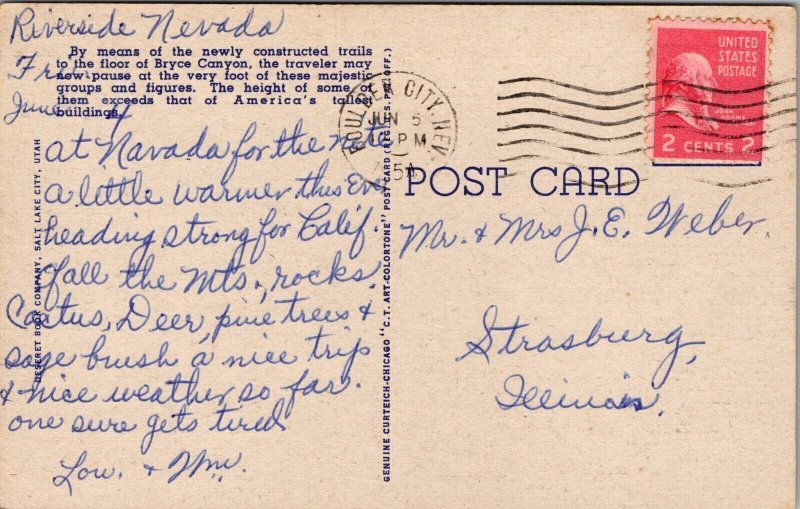 Riverside Nevada
Fri.
June 4
By means of the newly constructed trails
to the floor of Bryce Canyon, the traveler may
now pause at the very foot of these majestic
groups and figures. The height of some of
them exceeds that of America's tallest
buildings.
at Navada for the nite
a little warmer this Eve
heading strong for Calif.
of all the Mts., rocks.
Cactus, Deer, pine trees &
sage brush a nice trip
& nice weather so far.
one sure gets tired
Lou. & Wm.
DESERET BOOK COMPANY, SALT LAKE CITY, UTAH
GENUINE CURTEICH-CHICAGO "C.T. ART-COLORTONE" POST CARD (REG. U.S. PAT. OFF.)
BOULDER CITY, NEV.
JUN 5
PM
1954
UNITED
STATES
POSTAGE
JOHN
ADAMS
2 CENTS 2
POST CARD
Mr. & Mrs J. E. Weber.
Strasburg,
Illinois.